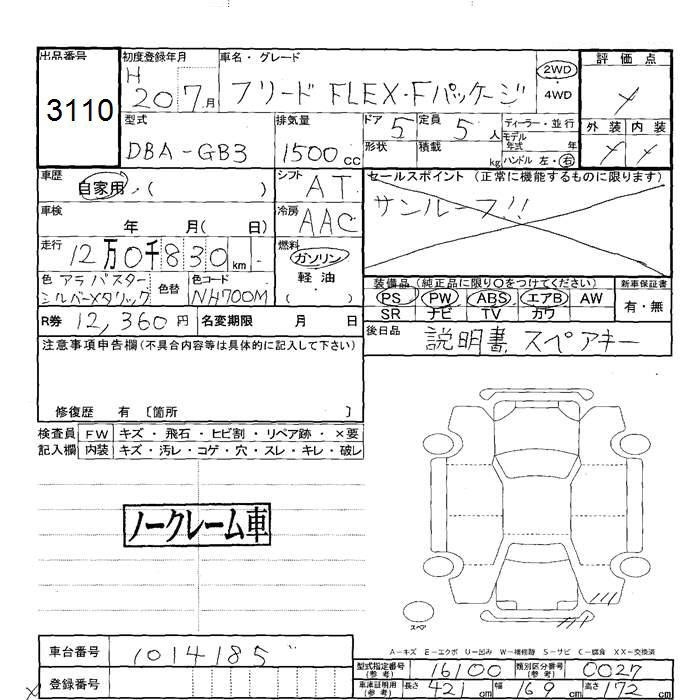 出品番号
3110
初度登録年月
H 20 7月
車名・グレード
フリード FLEX・Fパッケージ
2WD
4WD
評価点
外装 内装
型式
DBA-GB3
排気量
1500cc
ドア 5
形状
定員 5人
積載 kg
ディーラー・並行
モデル年式 年
ハンドル 左・右
車歴
自家用・( )
シフト AT
車検 年 月( 日)
冷房 AAC
走行 12万0千830km
燃料
ガソリン
軽油
( )
色 アラバスター
シルバーメタリック
色替
色コード
NH700M
セールスポイント (正常に機能するものに限ります)
サンルーフ!!
装備品 (純正品に限り○をつけてください)
新車保証書
PS PW ABS エアB AW
SR ナビ TV カワ
有・無
R券 12,360円
名変期限 月 日
後日品 説明書 スペアキー
注意事項申告欄 (不具合内容等は具体的に記入して下さい)
修復歴 有 〔箇所 〕
検査員 FW キズ・飛石・ヒビ割・リペア跡・×要
記入欄 内装 キズ・汚レ・コゲ・穴・スレ・キレ・破レ
ノークレーム車
スペア
A-キズ E-エクボ U-凹み W-補修跡 S-サビ C-腐食 XX-交換済
車台番号 1014185
登録番号
型式指定番号(参考) 16100
類別区分番号(参考) 0027
車庫証明用(参考) 長さ 421cm 幅 169cm 高さ 172cm